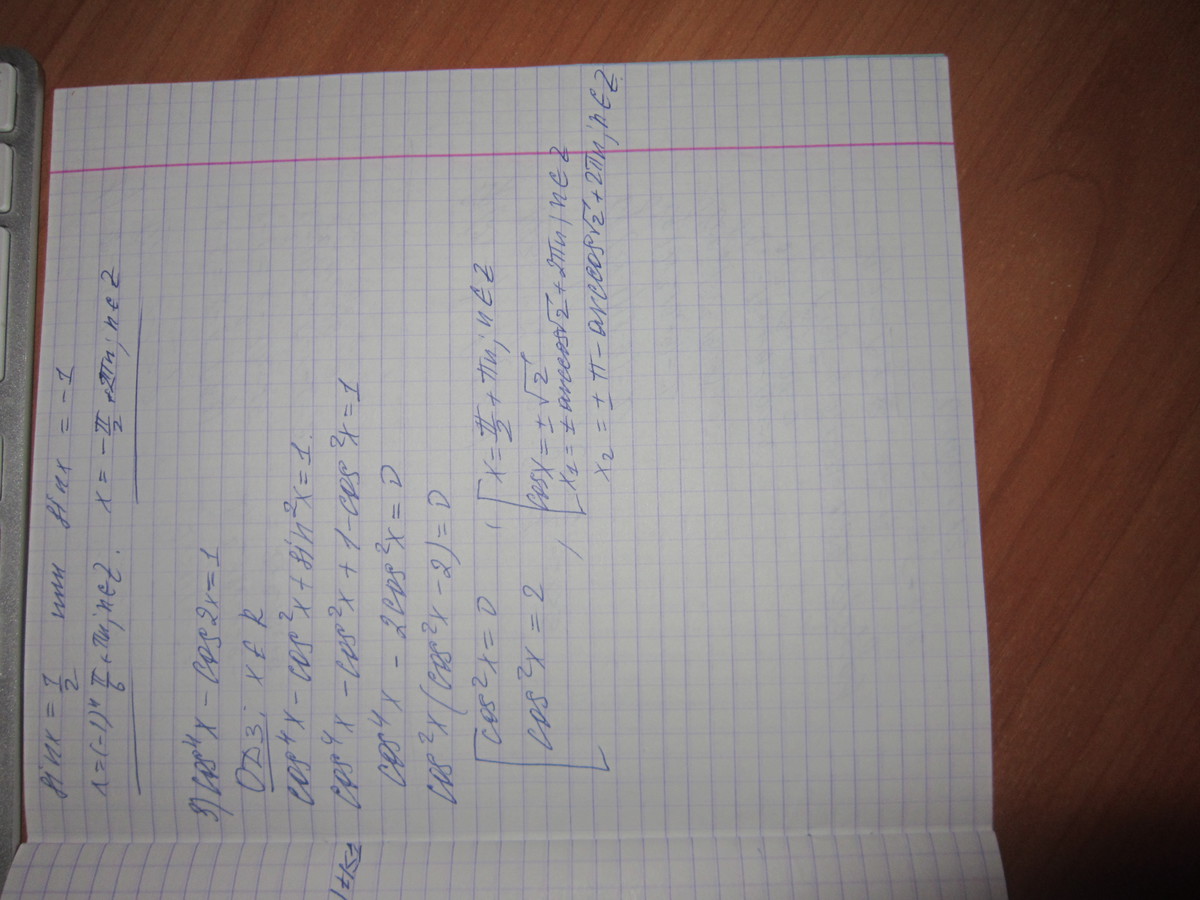 sinx = 1/2 или sinx = -1
x = (-1)ⁿ π/6 + πn; n∈Z. x = -π/2 + 2πn; n∈Z
9) cos⁴x - cos2x = 1
ОДЗ: x∈R
cos⁴x - cos²x + sin²x = 1.
cos⁴x - cos²x + 1 - cos²x = 1
cos⁴x - 2cos²x = 0
cos²x(cos²x - 2) = 0
[ cos²x = 0 , [ x = π/2 + πn; n∈Z
cos²x = 2 , cosx = ±√2
x₁ = ± arccos√2 + 2πn, n∈Z
x₂ = ± π - arccos√2 + 2πn; n∈Z